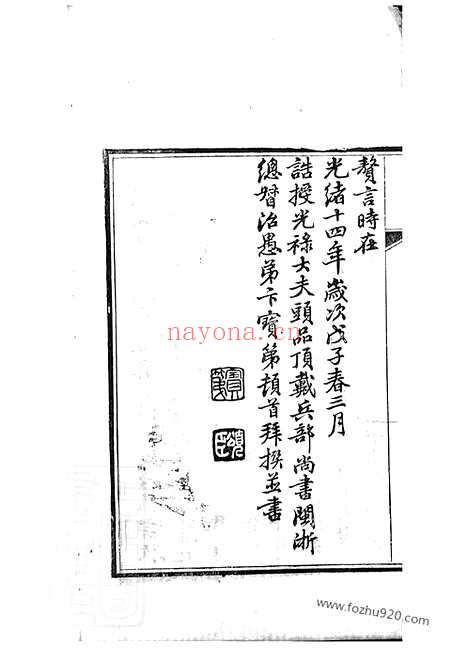 贅言時在
光緒十四年歲次戊子春三月
誥授光祿大夫頭品頂戴兵部尚書閩浙
總督治愚弟卞寶第頓首拜撰並書
nayona.cn
www.fozhu920.com